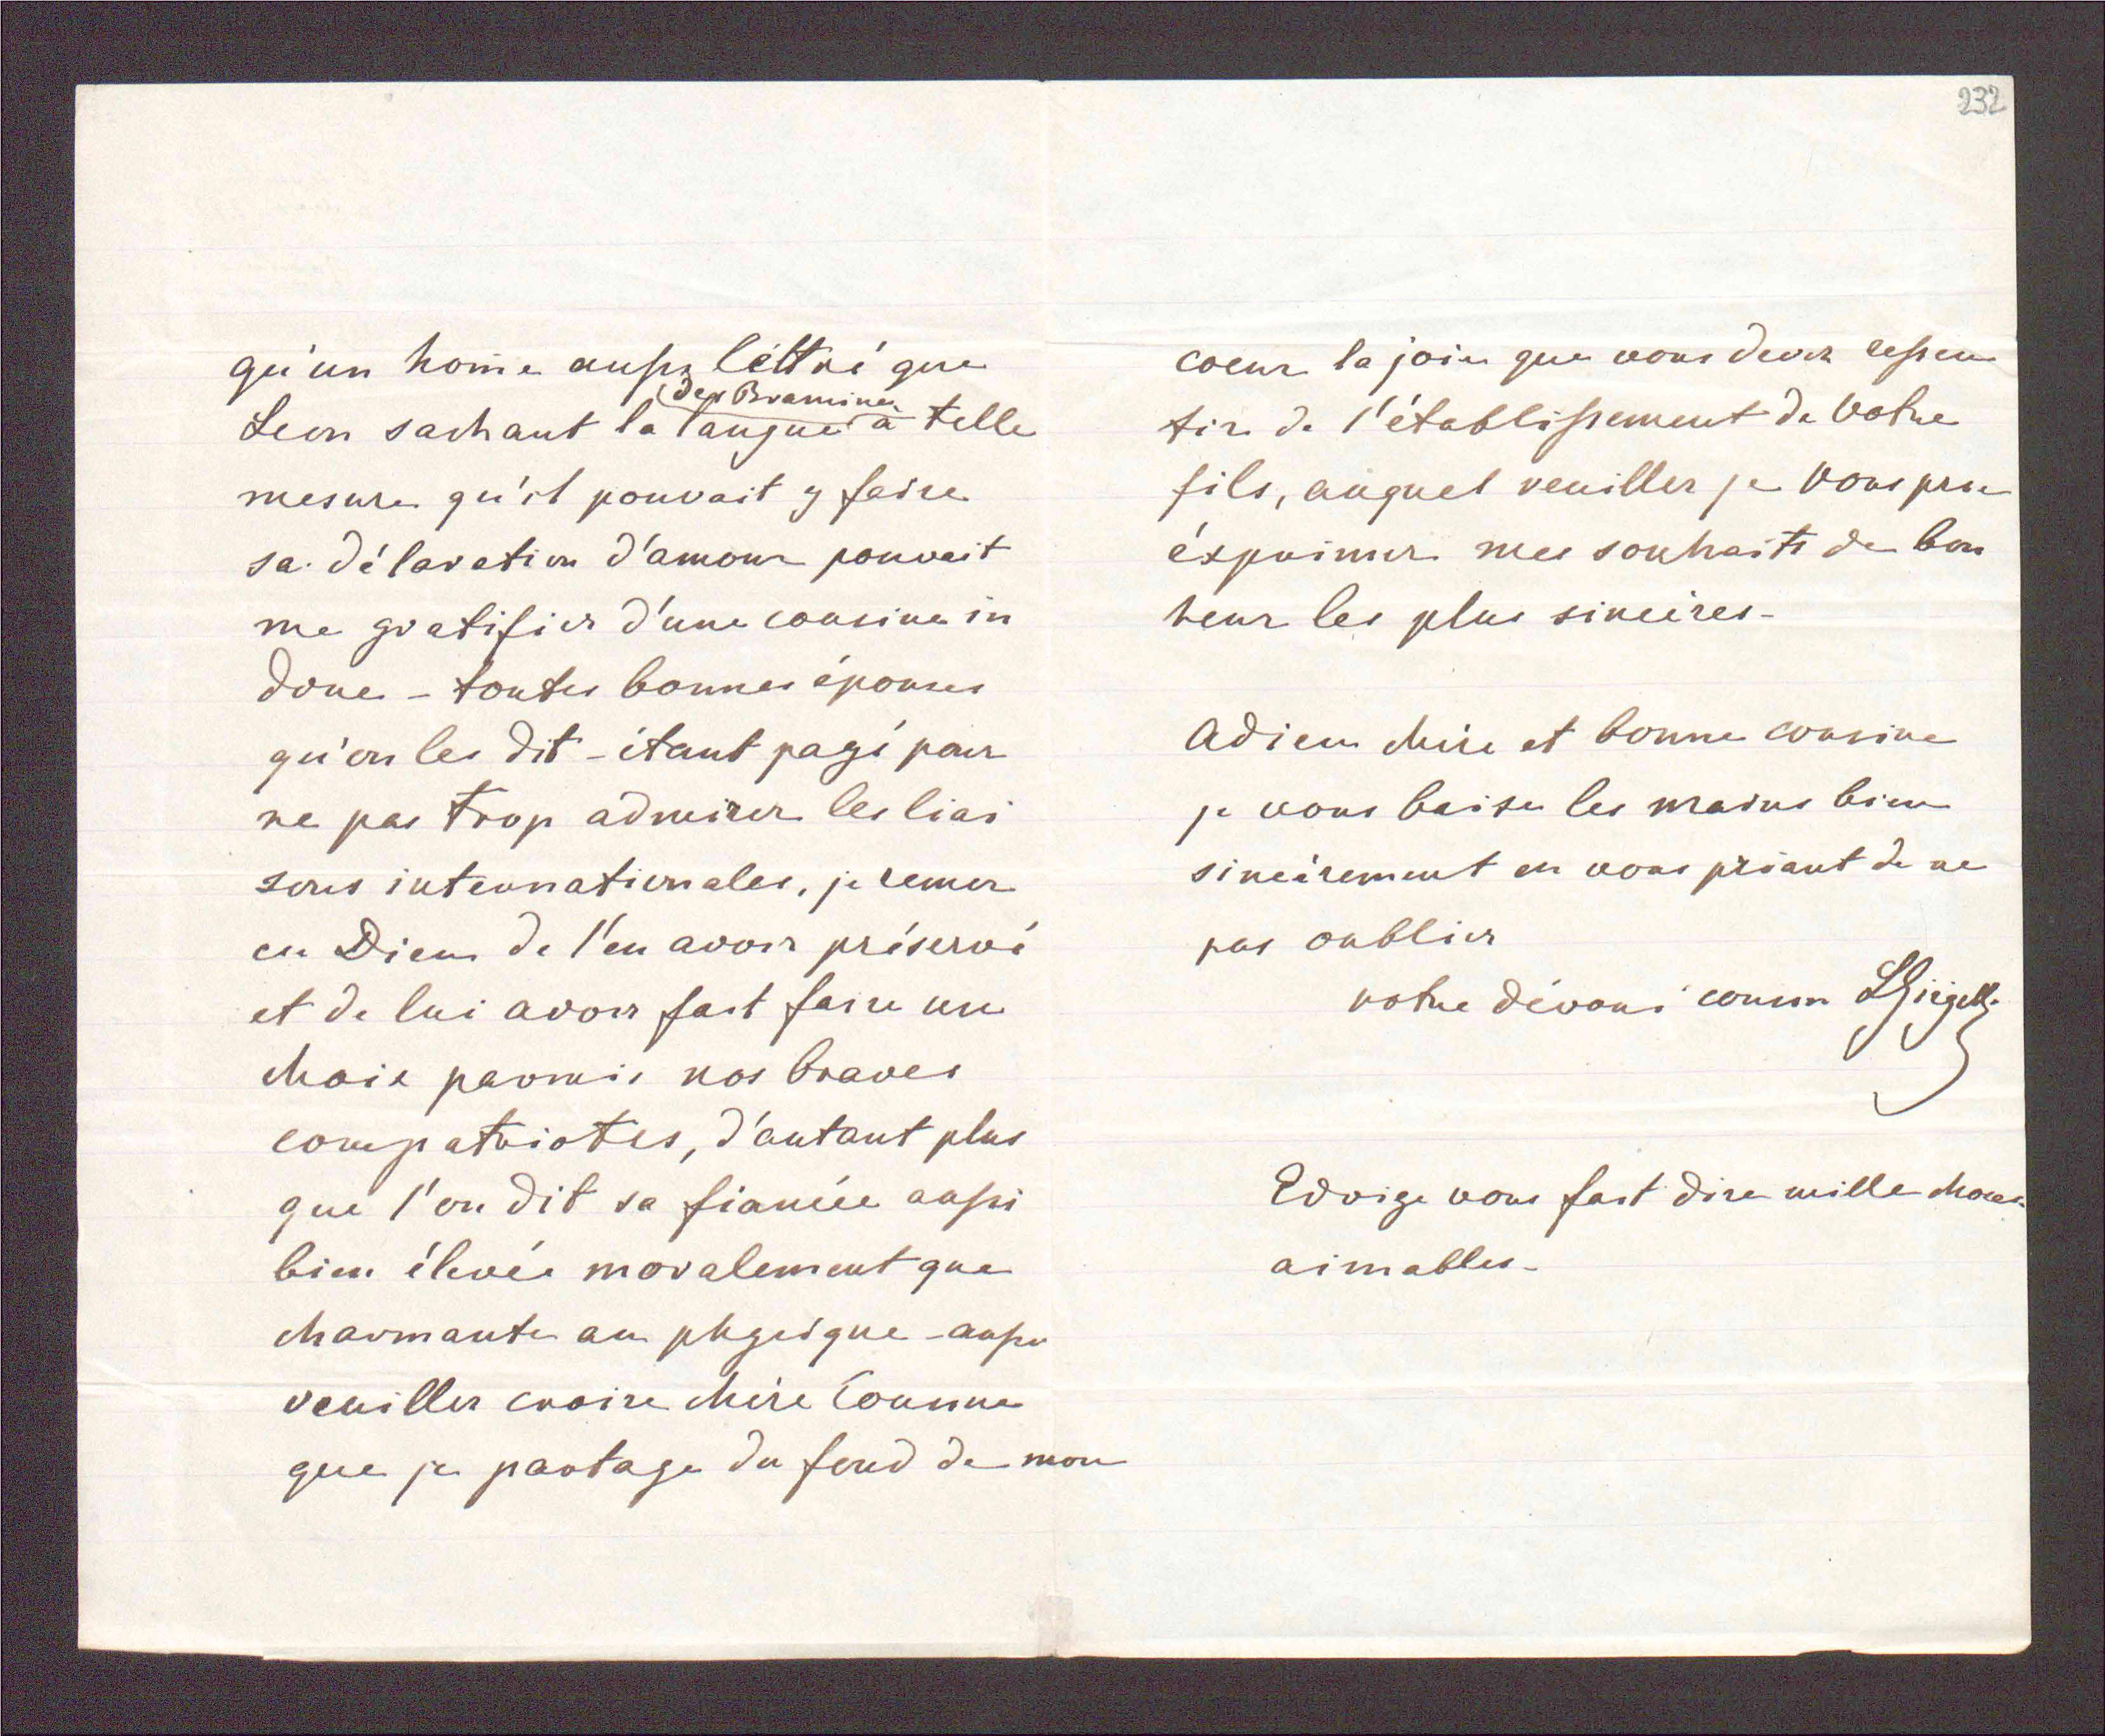 232
qu'un home aussi léttré que
Leon sachant la langue des Bramines à telle
mesure qu'il pouvait y faire
sa déclaration d'amour pouvait
me gratifier d'une cousine in
doue - toutes bonnes épouses
qu'on les dit - étant payé pour
ne pas trop admirer les liai
sons internationales, je remer
cie Dieu de l'en avoir préservé
et de lui avoir fait faire un
choix parmis nos braves
compatriotes, d'autant plus
que l'on dit sa fiancée aussi
bien élevée moralement que
charmante au physique - aussi
veuillez croire chère Cousine
que je partage du fond de mon
coeur la joie que vous devez ressen
tir de l'établissement de votre
fils, auquel veuillez je vous prie
éxprimer mes souhaits de bon
heur les plus sincères -
Adieu chère et bonne cousine
je vous baise les mains bien
sincèrement en vous priant de ne
pas oublier
votre dévoué cousin
Edvige vous fait dire mille choses
aimables -